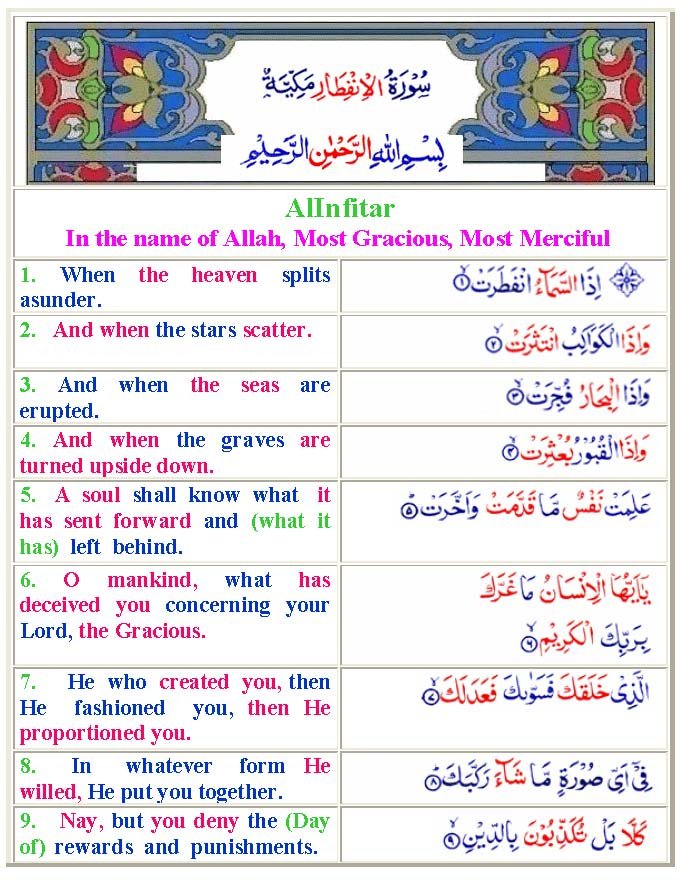 سُوْرَةُ الْاِنْفِطَارِ مَكِّيَّةٌ
بِسْمِ اللهِ الرَّحْمٰنِ الرَّحِيْمِ
AlInfitar
In the name of Allah, Most Gracious, Most Merciful
1. When the heaven splits
asunder.
اِذَا السَّمَآءُ انْفَطَرَتْ ۙ۱
2. And when the stars scatter.
وَاِذَا الْكَوَاكِبُ انْتَثَرَتْ ۙ۲
3. And when the seas are
erupted.
وَاِذَا الْبِحَارُ فُجِّرَتْ ۙ۳
4. And when the graves are
turned upside down.
وَاِذَا الْقُبُوْرُ بُعْثِرَتْ ۙ۴
5. A soul shall know what it
has sent forward and (what it
has) left behind.
عَلِمَتْ نَفْسٌ مَّا قَدَّمَتْ وَاَخَّرَتْ ؕ۵
6. O mankind, what has
deceived you concerning your
Lord, the Gracious.
يٰۤاَيُّهَا الْاِنْسَانُ مَا غَرَّكَ
بِرَبِّكَ الْكَرِيْمِ ۙ۶
7. He who created you, then
He fashioned you, then He
proportioned you.
الَّذِيْ خَلَقَكَ فَسَوّٰىكَ فَعَدَلَكَ ۙ۷
8. In whatever form He
willed, He put you together.
فِيْۤ اَيِّ صُوْرَةٍ مَّا شَآءَ رَكَّبَكَ ؕ۸
9. Nay, but you deny the (Day
of) rewards and punishments.
كَلَّا بَلْ تُكَذِّبُوْنَ بِالدِّيْنِ ۙ۹